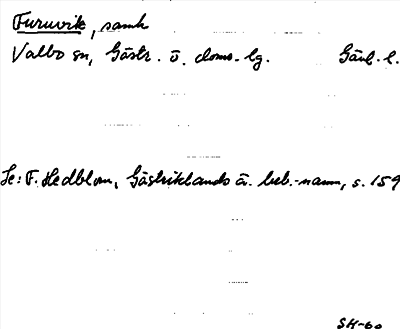 Furuvik, samh
Valbo sn, Gästr. ö. doms.-lg. Gävl. l.
Se: F. Hedblom, Gästriklands ä. beb.-namn, s. 159
SH-60